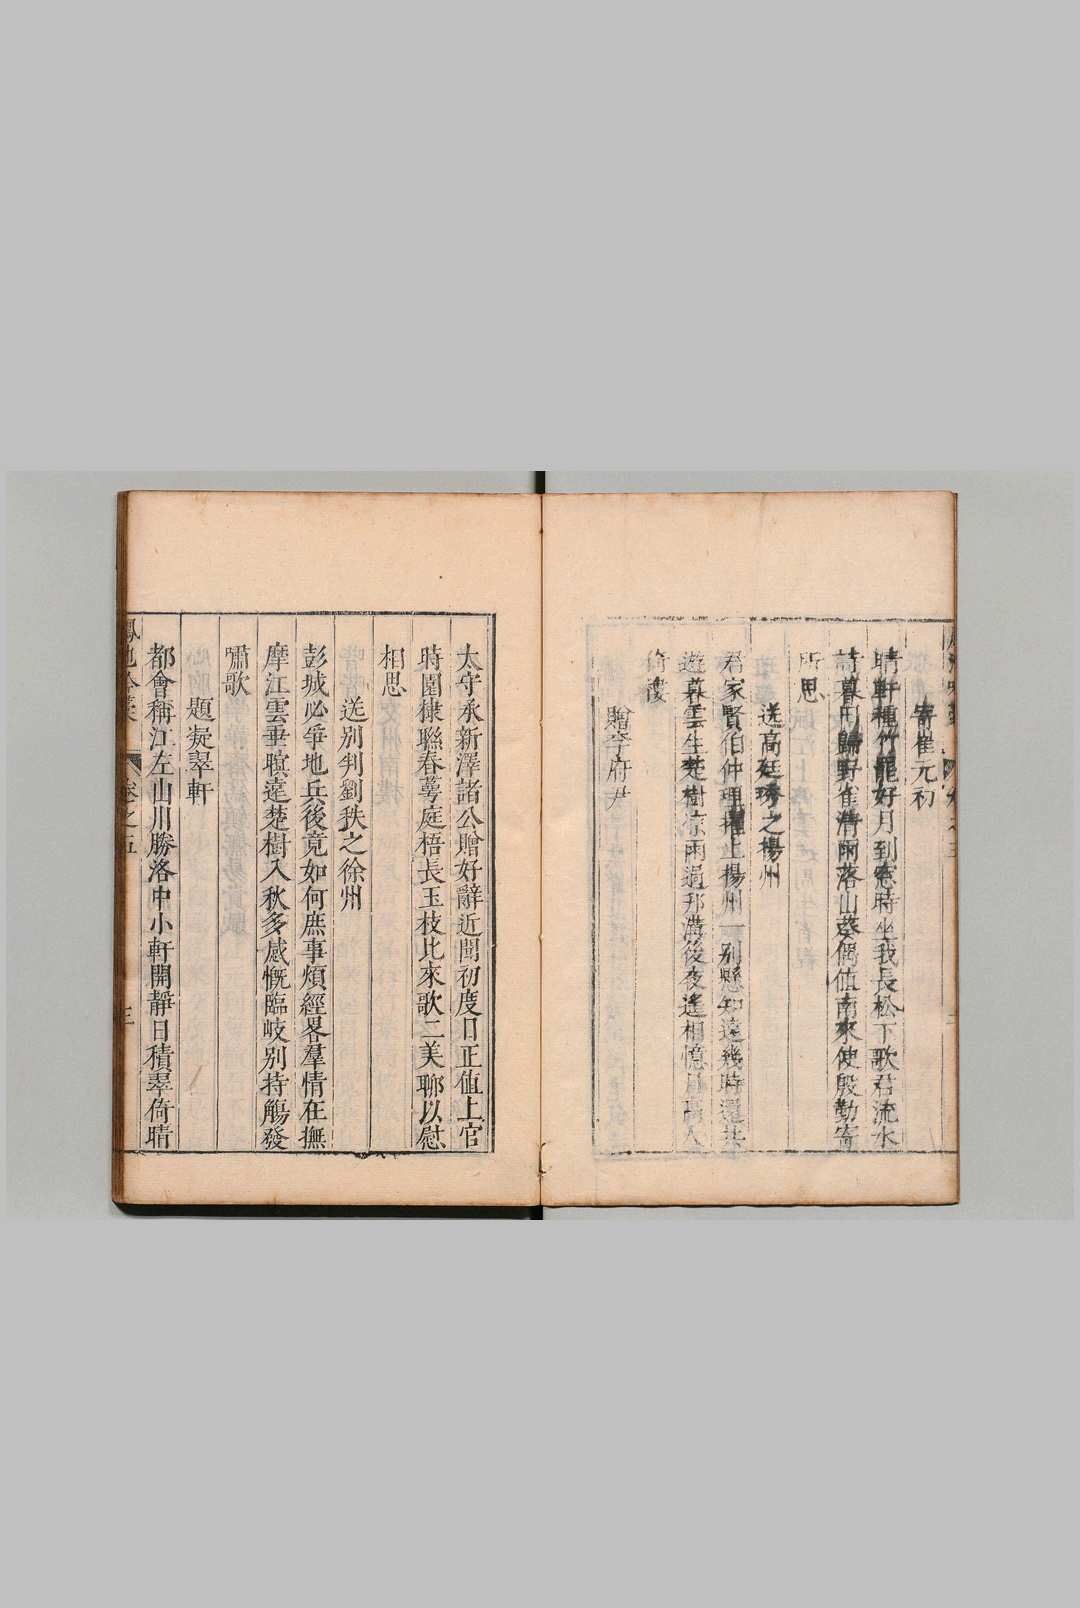 寄崔元初
晴軒種竹罷好月到窓時坐我長松下歌君流水
詩暮門歸野雀清雨落山葵偶值南來使殷勤寄
所思
送高廷琇之楊州
君家賢伯仲理擢上楊州一別懸知遠幾時還共
遊暮雲生楚樹凉雨過邗溝後夜遙相憶
倚樓
贈李府尹
太守承新澤諸公贈好辭近聞初度日正值上官
時園棣聯春萼庭梧長玉枝比來歌二美聊以慰
相思
送別判劉秩之徐州
彭城必爭地兵後竟如何庶事煩經畧羣情在撫
摩江雲垂暝遠楚樹入秋多感慨臨岐別持觴發
嘯歌
題凝翠軒
都會稱江左山川勝洛中小軒開靜日積翠倚晴
鳳池吟藁 卷之五 三